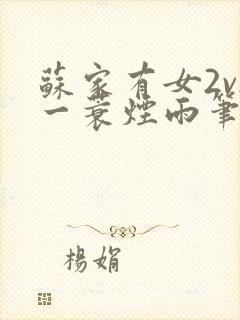 蘇家有女2v
一蓑煙雨筆
楊娟